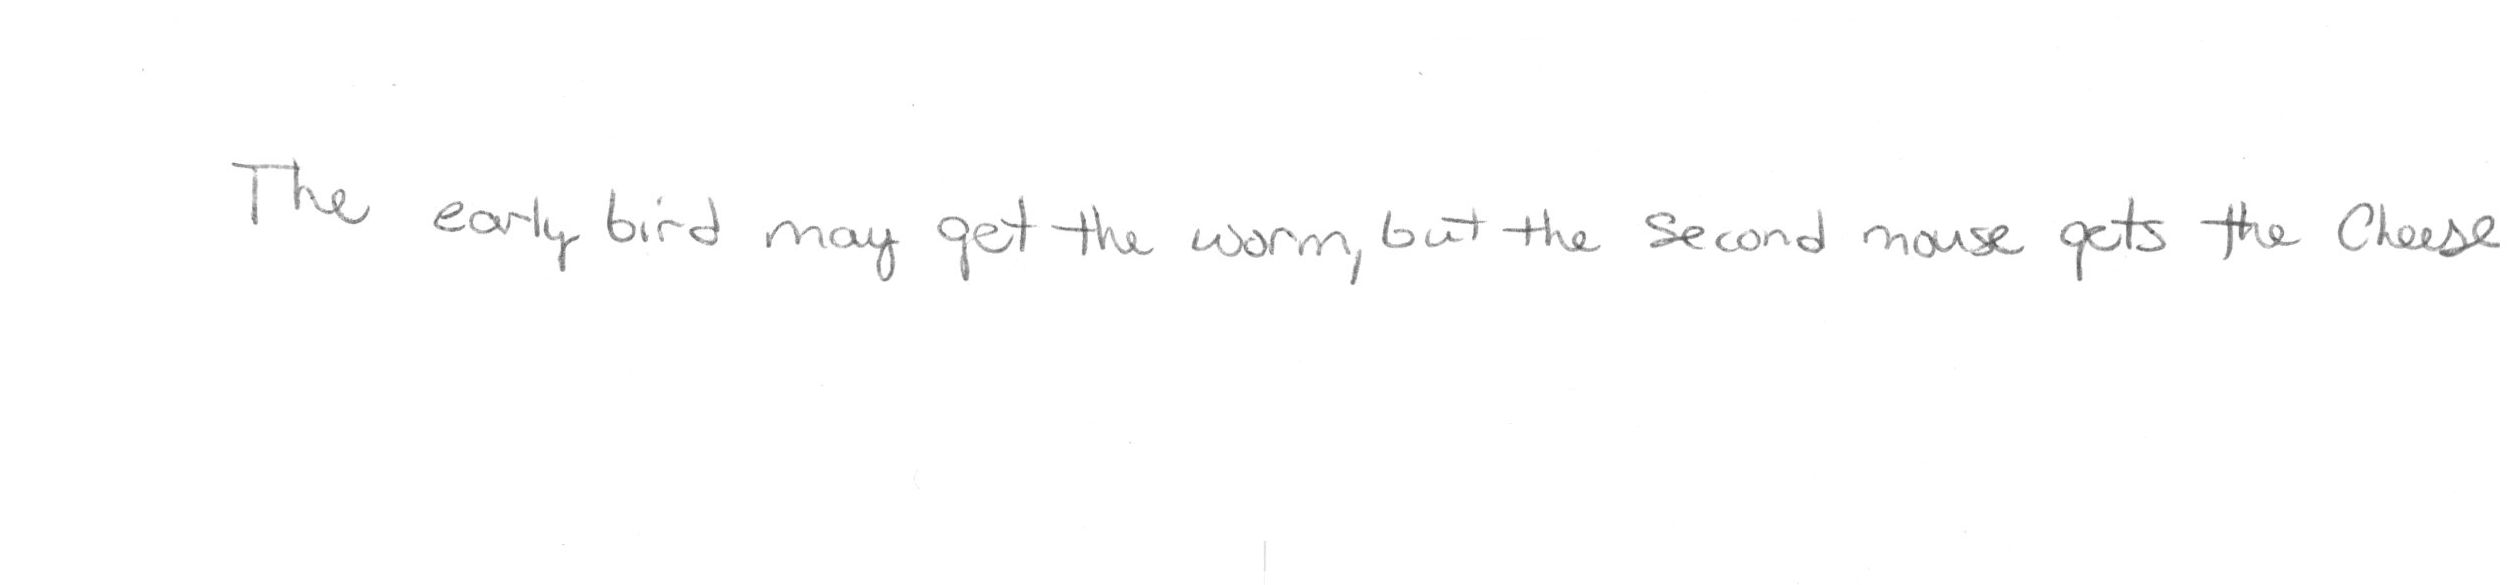 The early bird may get the worm, but the second mouse gets the Cheese